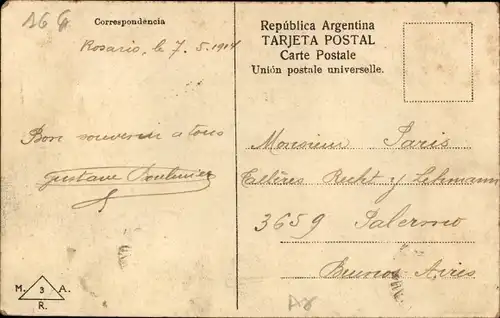 16 G
Correspondencia
Rosario, le 7.5.1914
Bon souvenir a tous
Gustave
República Argentina
TARJETA POSTAL
Carte Postale
Unión postale universelle.
Monsieur Paris
Talléres Recht y Lehmann
3659 Palermo
Buenos-Aires
M. 3 A.
R.